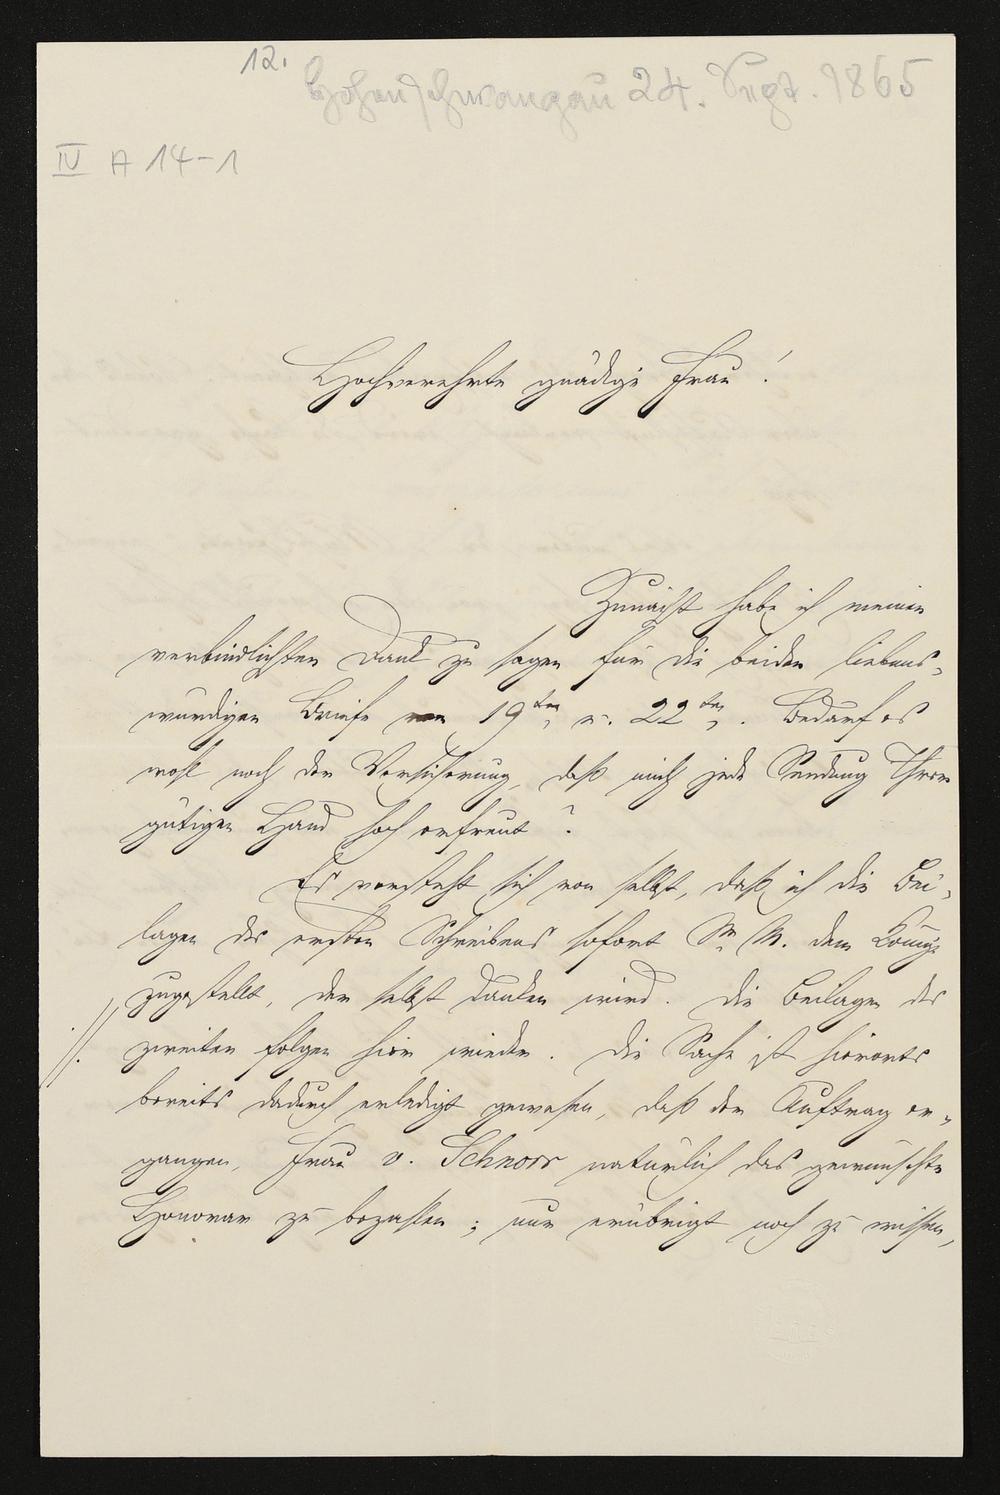 12.
Hohenschwangau 24. Sept. 1865
IV A 14-1
Hochverehrte gnädige Frau!
Zunächst habe ich meinen
verbindlichsten Dank zu sagen für die beiden liebens-
würdigen Briefe vom 19ten u. 22ten. Bedarf es
wohl noch der Versicherung, daß mich jede Sendung Ihrer
gütigen Hand hoch erfreut?
Es versteht sich von selbst, daß ich die Bei-
lagen des ersten Schreibens sofort Sr. M. dem König
zugestellt, der selbst danken wird. Die Beilagen des
zweiten folgen hier wieder. Die Sache ist hierorts
bereits dadurch erledigt gewesen, daß der Auftrag er-
gangen, Frau v. Schnorr natürlich das gewünschte
Honorar zu bezahlen; nur erübrigt noch zu wissen,